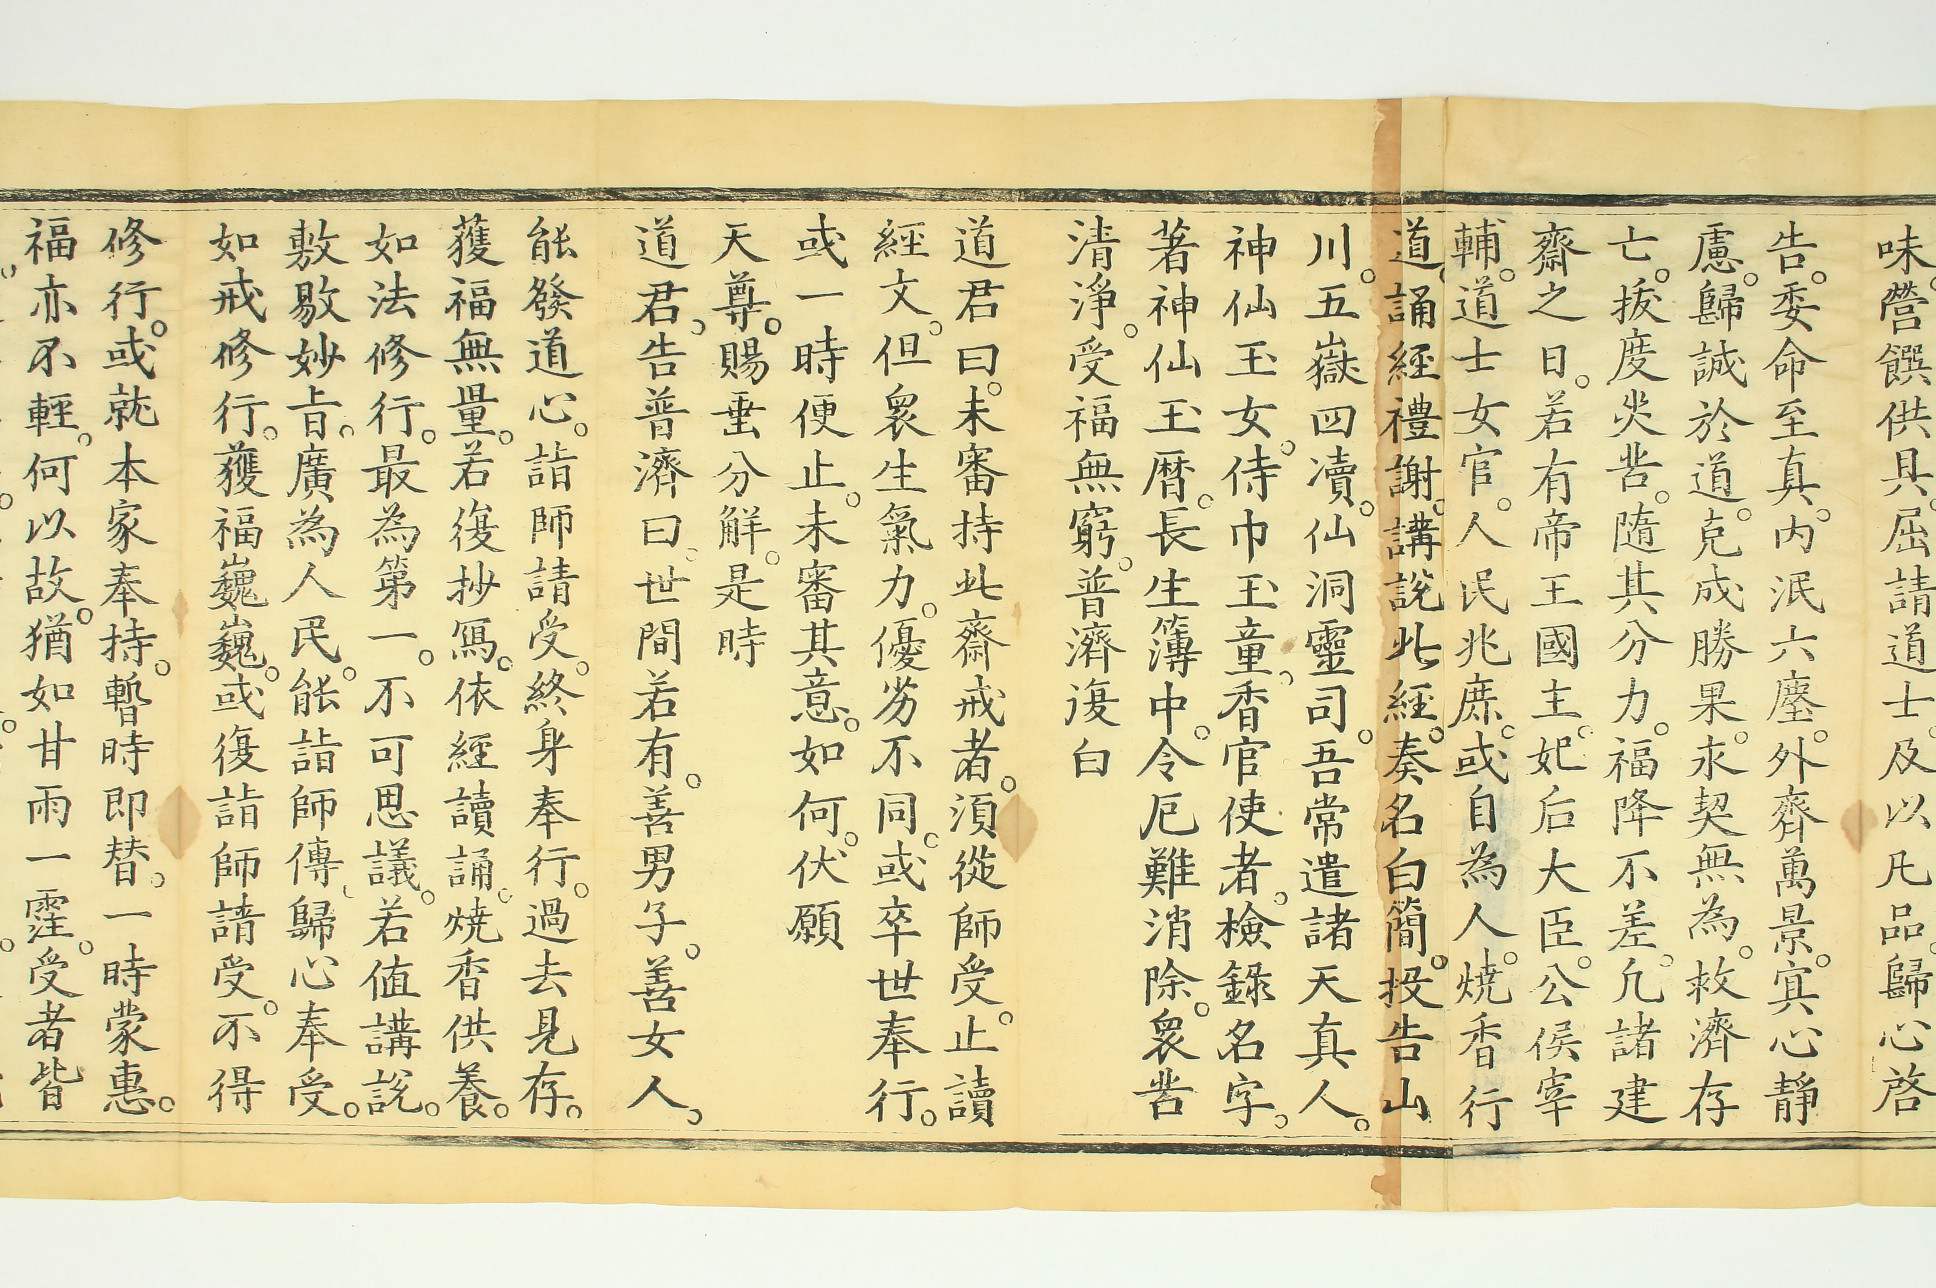 味。營饌供具。屈請道士。及以凡品。歸心啓
告。委命至真。内泯六塵。外齊萬景。寘心靜
慮。歸誠於道。克成勝果。求契無為。救濟存
亡。拔度災苦。隨其分力。福降不差。凡諸建
齋之日。若有帝王國主。妃后大臣。公侯宰
輔。道士女官。人民兆庶。或自為人。燒香行
道。誦經禮謝。講說此經。奏名白簡。投告山
川。五嶽四瀆。仙洞靈司。吾常遣諸天真人。
神仙玉女。侍巾玉童。香官使者。檢錄名字。
著神仙玉曆。長生簿中。令厄難消除。衆苦
清淨。受福無窮。普濟復白
道君曰。未審持此齋戒者。須從師受。止讀
經文。但衆生氣力。優劣不同。或卒世奉行。
或一時便止。未審其意。如何。伏願
天尊。賜垂分解。是時
道君。告普濟曰。世間若有。善男子。善女人。
能發道心。詣師請受。終身奉行。過去見存。
獲福無量。若復抄寫。依經讀誦。燒香供養。
如法修行。最為第一。不可思議。若值講說。
敷敭妙旨。廣為人民。能詣師傳。歸心奉受。
如戒修行。獲福巍巍。或復詣師請受。不得
修行。或就本家奉持。暫時即替。一時蒙惠。
福亦不輕。何以故。猶如甘雨一霔。受者皆